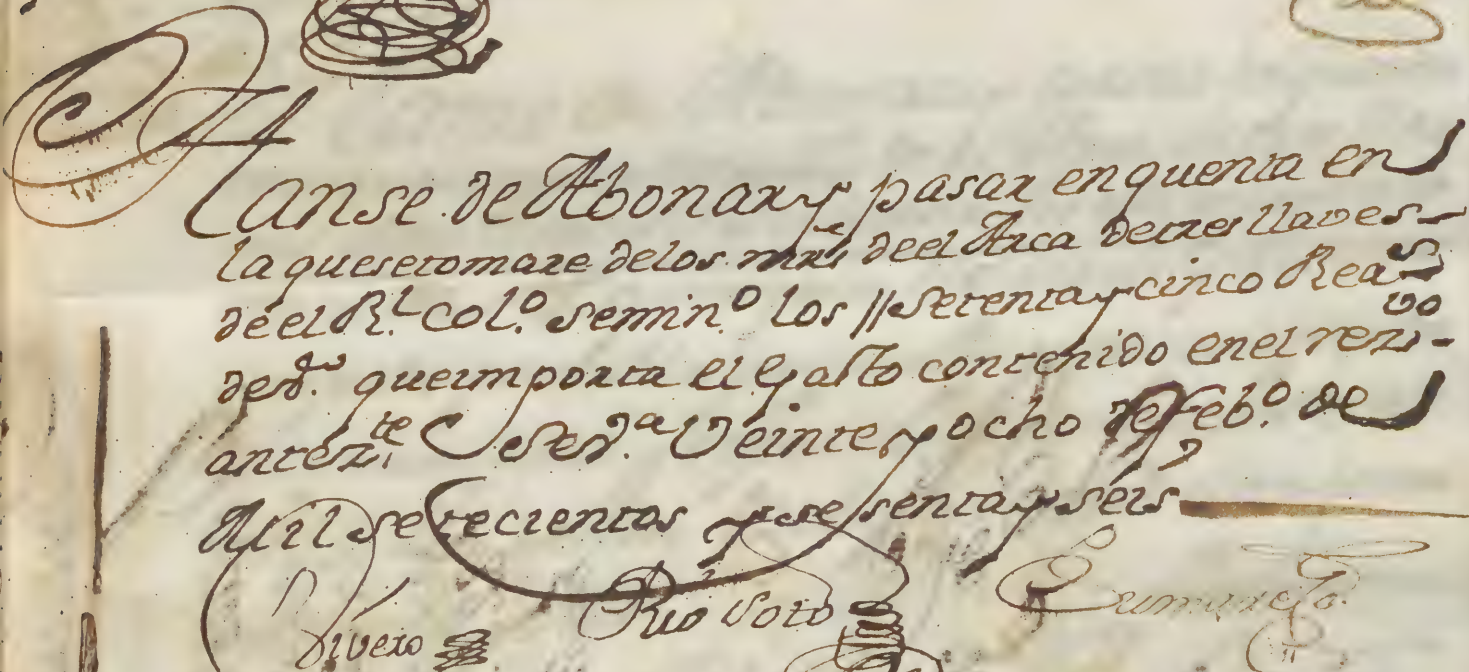 Hanse de Abonar y pasar en quenta en
la que se tomare de los mrs. de el Arca de tres llaves
de el Rl. Colo. Semino. los // setenta y cinco Reas.
de vn. que importa el Gasto contenido en el rezivo
antezte. Seva. Veinte y ocho de Febo. de
Mil setecientos y sesenta y seis
Rivero Rio Soto